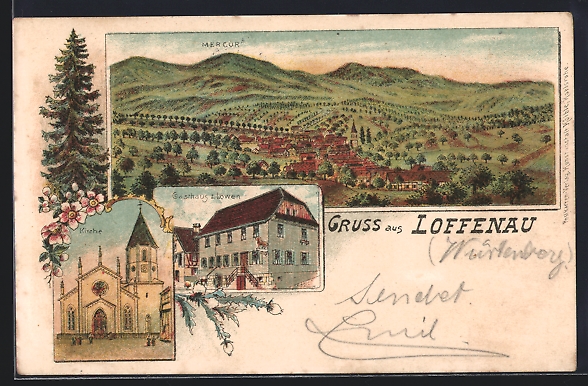 MERCUR
Gasthaus z. Löwen
Kirche
GRUSS aus LOFFENAU
(Würtenberg)
Sendet
Emil